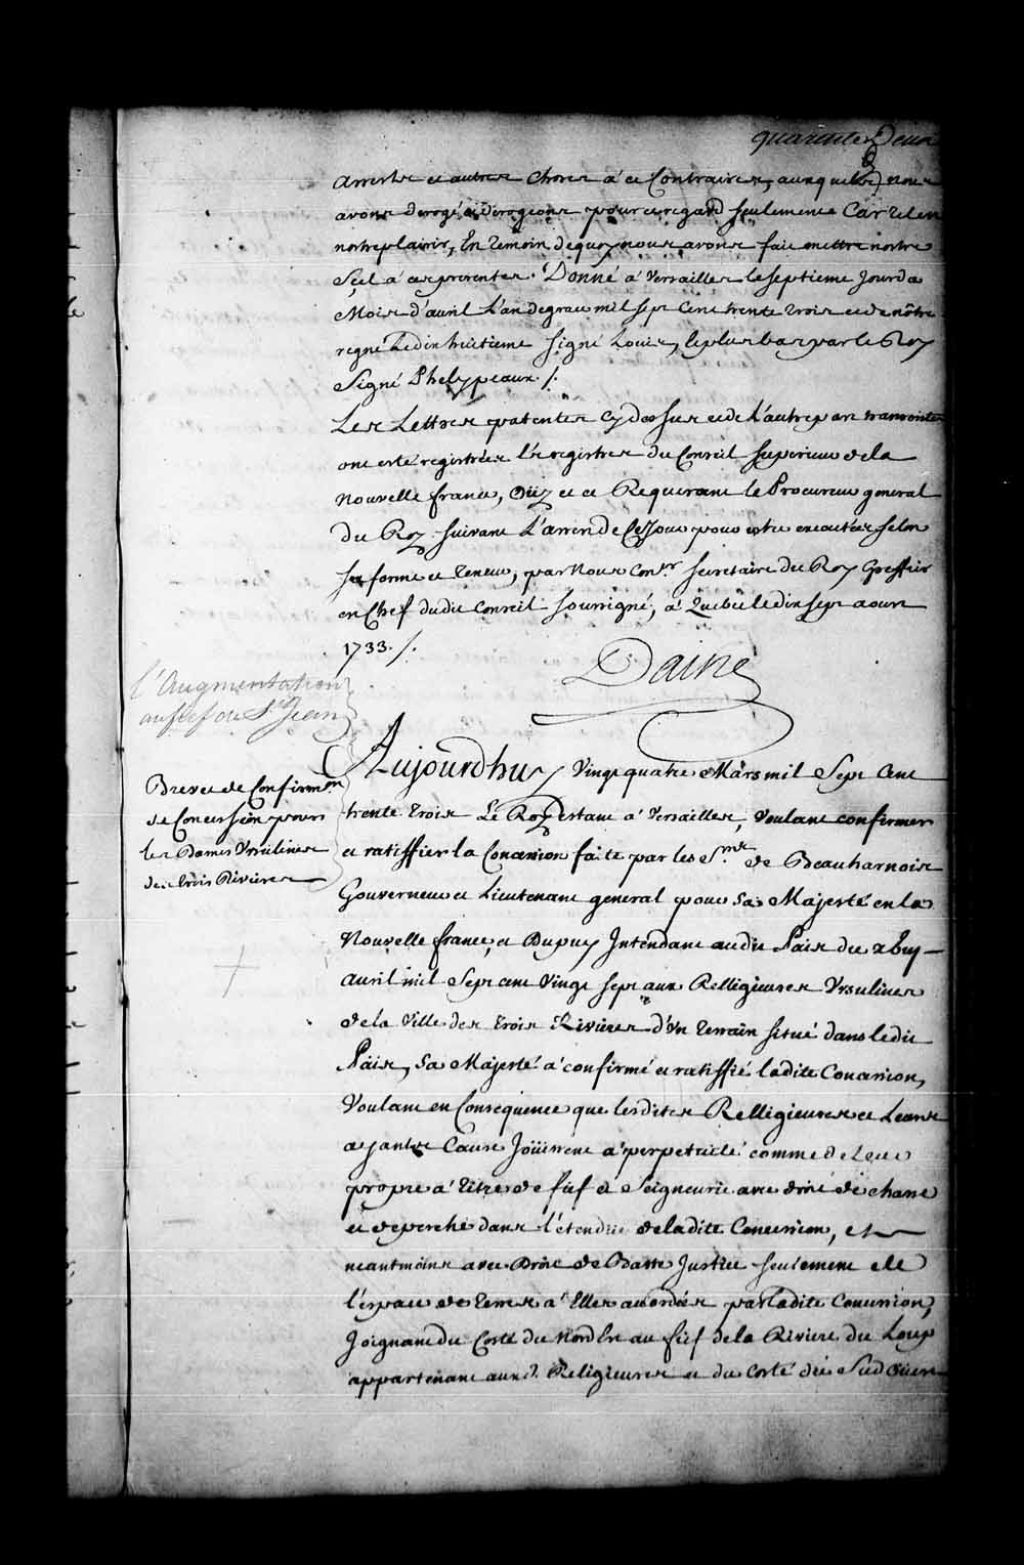 quarente Deux
arrests et autres choses à ce Contraires, auxquelles nous
avons derogé et derogeons pour ce regard seulement Car tel en
nostre plaisir, En temoin de quoy nous avons fait mettre nostre
Scel à ces presentes. Donné à Versailles le septieme Jour da
Mois d'avril L'an de grace mil sept Cent trente trois et de nôtre
regne Le dix huitieme signé Louis, le plus bas par le Roy
Signé Phelypeaux ./.
Les Lettres patentes cy dessus et de L'autre part transcrites
ont esté registrées és registres du Conseil Superieur de la
Nouvelle france, oüy et ce Requerant le Procureur general
Du Roy suivant L'arrest de Ce Jour pour estre executées selon
sa forme et teneur, par Nous Conser Secretaire du Roy Greffier
en Chef dudit Conseil soussigné, à Quebec le dix sept aoust
1733 ./.
Daine
l'Augmentation
au fief de St Jean
Brevet de Confirmon
de Concession pour
les Dames Ursulines
des trois Rivieres
Aujourdhuy Vingt quatre Mars mil Sept Cent
trente trois Le Roy estant à Versailles, Voulant confirmer
et ratiffier la Concession faite par les Srs de Beauharnois
Gouverneur et Lieutenant general pour Sa Majesté en la
Nouvelle france, et Dupuy Intendant audit Païs du
avril mil Sept cent Vingt sept aux Relligieuses Ursulines
de la Ville des trois Rivieres d'Un terrain situé dans ledit
Païs, Sa Majesté à confirmé et ratiffié ladite Concession,
Voulant en Consequence que lesdites Relligieuses et Leurs
ayants Cause Joüissent à perpetuité comme de Leur
propre à titre de fief et Seigneurie avec droit de chasse
et de pesche dans l'étendue de ladite Concession, et
neantmoins avec Droit de Basse Justice seulement de
l'espace de terres à Elles accordées par ladite Concession,
Joignant du Costé du Nord Est au fief de la Riviere du Loup
appartenant auxd. Religieuses et du Costé du Sud Ouest